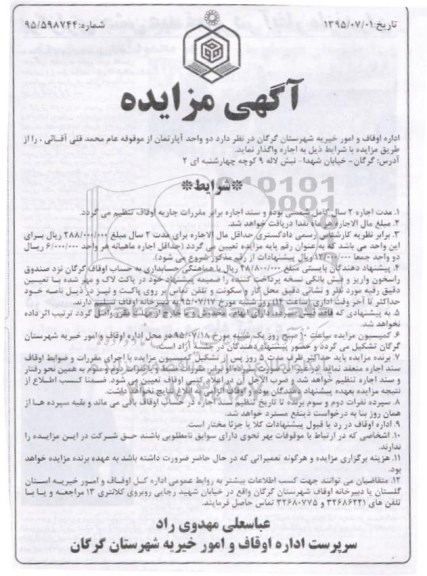 تاریخ: ۱۳۹۵/۰۷/۰۱
شماره: ۹۵/۵۹۸۷۴۴
آگهی مزایده
اداره اوقاف و امور خیریه شهرستان گرگان در نظر دارد دو واحد آپارتمان از موقوفه عام محمد قلی آقائی ، را از
طریق مزایده با شرایط ذیل به اجاره واگذار نماید.
آدرس: گرگان- خیابان شهدا - نبش لاله ۹ کوچه چهارشنبه ای ۲
*شرایط*
۱. مدت اجاره ۲ سال کامل شمسی بوده و سند اجاره برابر مقررات جاریه اوقاف تنظیم می گردد.
۲. مبلغ مال الاجاره هر ماه نقدا دریافت خواهد شد.
۳. برابر نظریه کارشناس رسمی دادگستری حداقل مال الاجاره برای مدت ۲ سال مبلغ ۲۸۸/۰۰۰/۰۰۰ ریال برای
این واحد می باشد که به عنوان رقم پایه مزایده تعیین می گردد (حداقل اجاره ماهیانه هر واحد ۶/۰۰۰/۰۰۰ ریال
دو واحد جمعا ۱۲/۰۰۰/۰۰۰ ریال پیشنهادات از رقم مذکور شروع می شود).
۴. پیشنهاد دهندگان بایستی مبلغ ۲۸/۸۰۰/۰۰۰ ریال با هماهنگی حسابداری به حساب اوقاف گرگان نزد صندوق
حداکثر تا آخر وقت اداری (ساعت ۱۴) روز شنبه مورخ ۹۵/۰۷/۱۷ به دبیرخانه اوقاف تسلیم دارند.
۵. به پیشنهادی که فاقد
نخواهد شد.
۶. کمیسیون مزایده ساعت ۱۰ صبح روز یک شنبه مورخ ۹۵/۰۷/۱۸ در محل اداره اوقاف و امور خیریه شهرستان
گرگان تشکیل می گردد و حضور پیشنهاد دهندگان در جلسه آزاد است
۷. برنده مزایده باید حداکثر ظرف مدت ۵ روز پس از تشکیل کمیسیون مزایده با اجرای مقررات و ضوابط اوقاف
۸. سپرده نفرات دوم و سوم برنده تا تاریخ تنظیم سند اجاره در حساب اوقاف باقی می ماند و بقیه سپرده ها از
همان روز بنا به درخواست ذینفع مسترد خواهد شد.
۹. اداره اوقاف در رد یا قبول پیشنهادات کلا یا جزئا مختار است.
۱۰. اشخاصی که در ارتباط با موقوفات بهر نحوی دارای سوابق نامطلوبی باشند حق شرکت در این مزایده را
ندارند.
۱۱. هزینه برگزاری مزایده و هرگونه تعمیراتی که در حال حاضر ضرورت داشته باشد به عهده برنده مزایده خواهد
بود.
۱۲. متقاضیان می توانند جهت کسب اطلاعات بیشتر به روابط عمومی اداره کل اوقاف و امور خیریه استان
گلستان یا دبیرخانه اوقاف شهرستان گرگان واقع در خیابان شهید رجایی روبروی کلانتری ۱۳ مراجعه و یا با
تلفن های ۳۲۶۸۶۲۲۱ و ۳۲۶۸۰۷۷۵ تماس حاصل فرمایند.
عباسعلی مهدوی راد
سرپرست اداره اوقاف و امور خیریه شهرستان گرگان